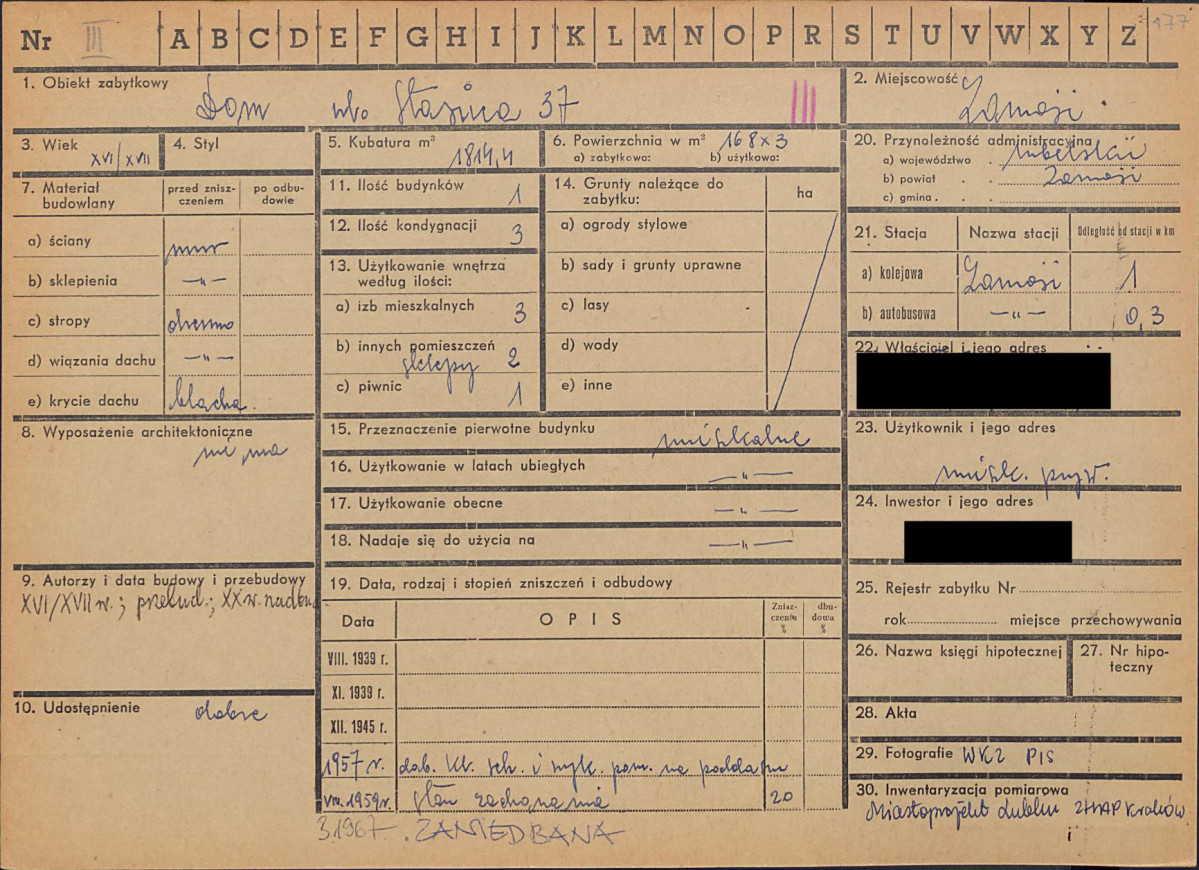 Nr III A B C D E F G H I J K L M N O P R S T U V W X Y Z 177
1. Obiekt zabytkowy
Dom ul. Staszica 37 III
2. Miejscowość
Zamość
3. Wiek
XVI/XVII
4. Styl
5. Kubatura m³
1814,4
6. Powierzchnia w m² 168x3
a) zabytkowa: b) użytkowa:
20. Przynależność administracyjna
a) województwo . lubelskie
b) powiat . . Zamość
c) gmina . .
7. Materiał budowlany
przed zniszczeniem
po odbudowie
a) ściany mur
b) sklepienia —„—
c) stropy drewno
d) wiązania dachu —„—
e) krycie dachu blacha.
11. Ilość budynków 1
12. Ilość kondygnacji 3
13. Użytkowanie wnętrza
według ilości:
a) izb mieszkalnych 3
b) innych pomieszczeń
sklepy 2
c) piwnic 1
14. Grunty należące do
zabytku:
ha
a) ogrody stylowe
b) sady i grunty uprawne
c) lasy
d) wody
e) inne
21. Stacja Nazwa stacji Odległość od stacji w km
a) kolejowa Zamość 1
b) autobusowa —„— 0,3
22. Właściciel i jego adres
8. Wyposażenie architektoniczne
nie ma
15. Przeznaczenie pierwotne budynku mieszkalne
16. Użytkowanie w latach ubiegłych —„—
17. Użytkowanie obecne —„—
18. Nadaje się do użycia na —„—
23. Użytkownik i jego adres
mieszk. pryw.
24. Inwestor i jego adres
9. Autorzy i data budowy i przebudowy
XVI/XVII w.; przebud.; XX w. nadbud.
19. Data, rodzaj i stopień zniszczeń i odbudowy
Data OPIS Zniszczenia % dbudowa %
VIII. 1939 r.
XI. 1939 r.
XII. 1945 r.
1957 r. dob. kl. sch. i wyk. pom. na poddaszu
VIII. 1959 r. stan zachowania 20
3.1967. ZANIEDBANA
25. Rejestr zabytku Nr
rok miejsce przechowywania
26. Nazwa księgi hipotecznej
27. Nr hipoteczny
10. Udostępnienie dobre
28. Akta
29. Fotografie WKZ PIS
30. Inwentaryzacja pomiarowa
Miastoprojekt Lublin ZHAP Kraków
i